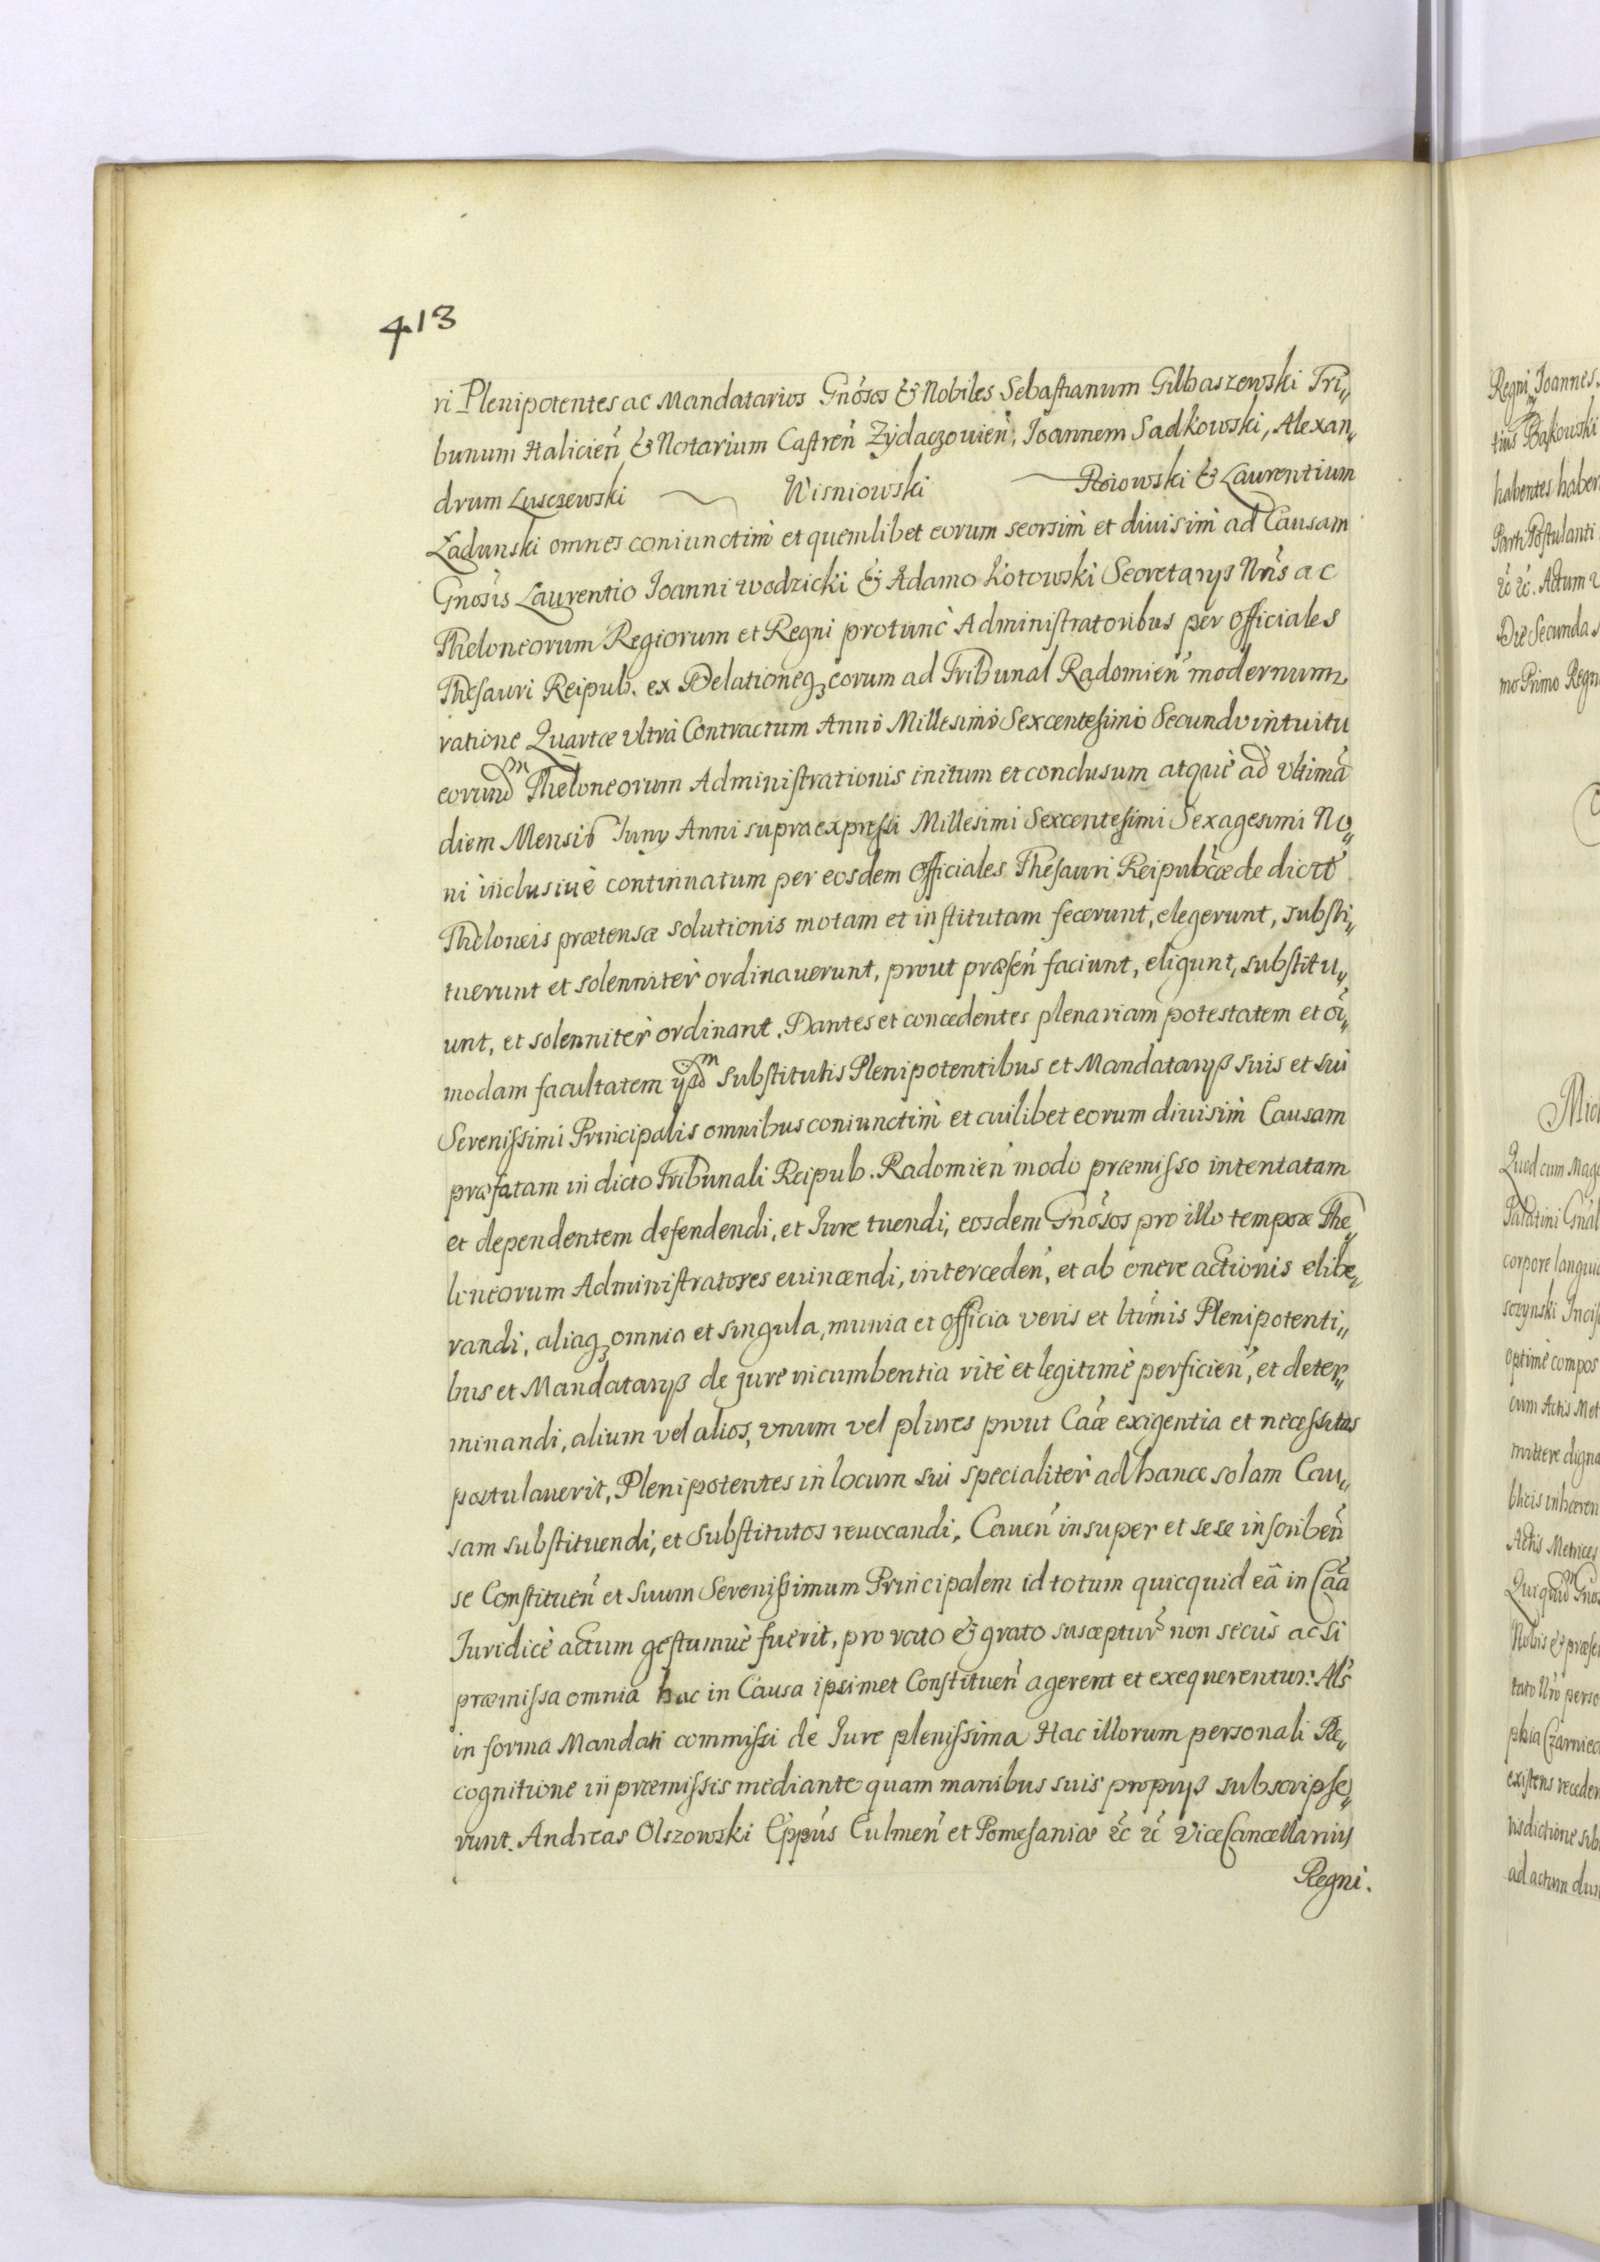 413
ri Plenipotentes ac Mandatarios Gnõsos & Nobiles Sebastianum Gilbaszewski Tri„
bunum Halicień & Notarium Castreń Zydaczowień, Ioannem Sadkowski, Alexan„
drum Lusczewski ~ Wisniowski ~ Roiowski & Laurentium
Ładunski omnes coniunctim et quemlibet eorum seorsim et diuisim ad Causam
Gnosis Laurentio Ioanni Wodzicki & Adamo Kotowski Secretarys Nr̃is ac
Theloneorum Regiorum et Regni protunc Administratoribus per Officiales
Thesauri Reipub. ex Delationeq₃ eorum ad Tribunal Radomień modernum
ratione Quartæ vltra Contractum Anno Millesimo Sexcentesimo Secundo intuitu
eorundm Theloneorum Administrationis initum et conclusum atque ad vltimã
diem Mensis Iuny Anni supraexpressi Millesimi Sexcentesimi Sexagesimi No„
ni inclusiue continuatum per eosdem Officiales Thesauri Reipubcæ de dictt
Theloneis prætensæ solutionis motam et institutam fecerunt, elegerunt, substi„
tuerunt et solenniter ordinauerunt, prout præseń faciunt, eligunt, substitu„
unt, et solenniter ordinant. Dantes et concedentes plenariam potestatem et õi„
modam facultatem ijsdm Substitutis Plenipotentibus et Mandatarys suis et sui
Serenissimi Principalis omnibus coniunctim et cuilibet eorum diuisim Causam
præfatam in dicto Tribunali Reipub. Radomień modo præmisso intentatam
et dependentem defendendi, et Iure tuendi, eosdem Gnõsos pro illo tempore The„
loneorum Administratores euincendi, interceden, et ab onere actionis elibe„
randi, aliaq₃ omnia et singula, munia et officia veris et ltimis Plenipotenti„
bus et Mandatarys de jure incumbentia rite et legitime perficień, et deter„
minandi, alium vel alios, vnum vel plures prout Caæ exigentia et necessitas
postulauerit, Plenipotentes in locum sui specialiter ad hance solam Cau„
sam substituendi, et Substitutos reuocandi, Caueń insuper et sese inscribeń
se Constitueń et suum Serenissimum Principalem id totum quicquid eâ in Caã
Iuridice actum gestumue fuerit, pro rato & grato susceptur̃ non secus ac si
præmissa omnia hac in Causa ipsimet Constitueń agerent et exequerentur: Als̃
in forma Mandati commissi de Iure plenissima Hac illorum personali Re„
cognitione in præmissis mediante quam manibus suis proprys subscripse„
runt. Andreas Olszowski Eppus Culmeń et Pomesaniæ &c &c ViceCancellarius
Regni.
Regni, Ioannes
tius Bąkowski
habentes haben
Parti Postulanti
&c &c. Actum
Die Secunda
mo Primo Regn
Quod cum Mag
Palatini Gnal
corpore langui
optime compos
cum Actis Met
mittere digna
blicis inhæren
Actis Metrices
Nobis & præse
tato Nro perso
phia Czarniec
existens receden
risdictione sub
ad actum dun